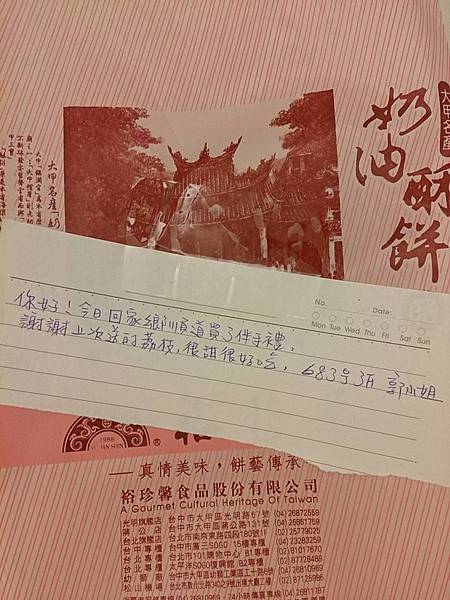 大甲名產
奶油酥餅
大甲名產
No.
Date:
Mon Tue Wed Thu Fri Sat Sun
你好！今日回家鄉順道買了伴手禮，
謝謝上次送的荔枝，很甜很好吃，683号3F 郭小姐
1966
®
—真情美味，餅藝傳承
裕珍馨食品股份有限公司
A Gourmet Cultural Heritage Of Taiwan
光明旗艦店 台中市大甲區光明路67號 (04)26872559
蔣公店 台中市大甲區蔣公路131號 (04)26861759
台北店 台北市南京東路四段180號1F (02)25779025
台中專櫃 台中市廣三SOGO 15樓專櫃 (04)23283259
台北專櫃 台北市101購物中心 B1專櫃 (02)81017670
台北專櫃 太平洋SOGO復興館 B2專櫃 (02)87728489
幼獅廠 台中市大甲區幼獅工業區工十路6號 (04)26810969
松山機場 台北市敦化北路340之9號出境大廳二樓 (02)87125986
(04)26810969